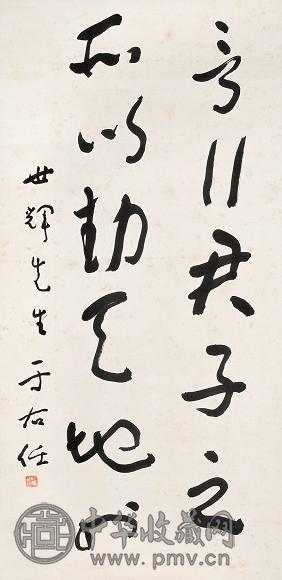 言行君子之
所以動天地也
世輝先生 于右任
中华收藏网
www.pmv.cn